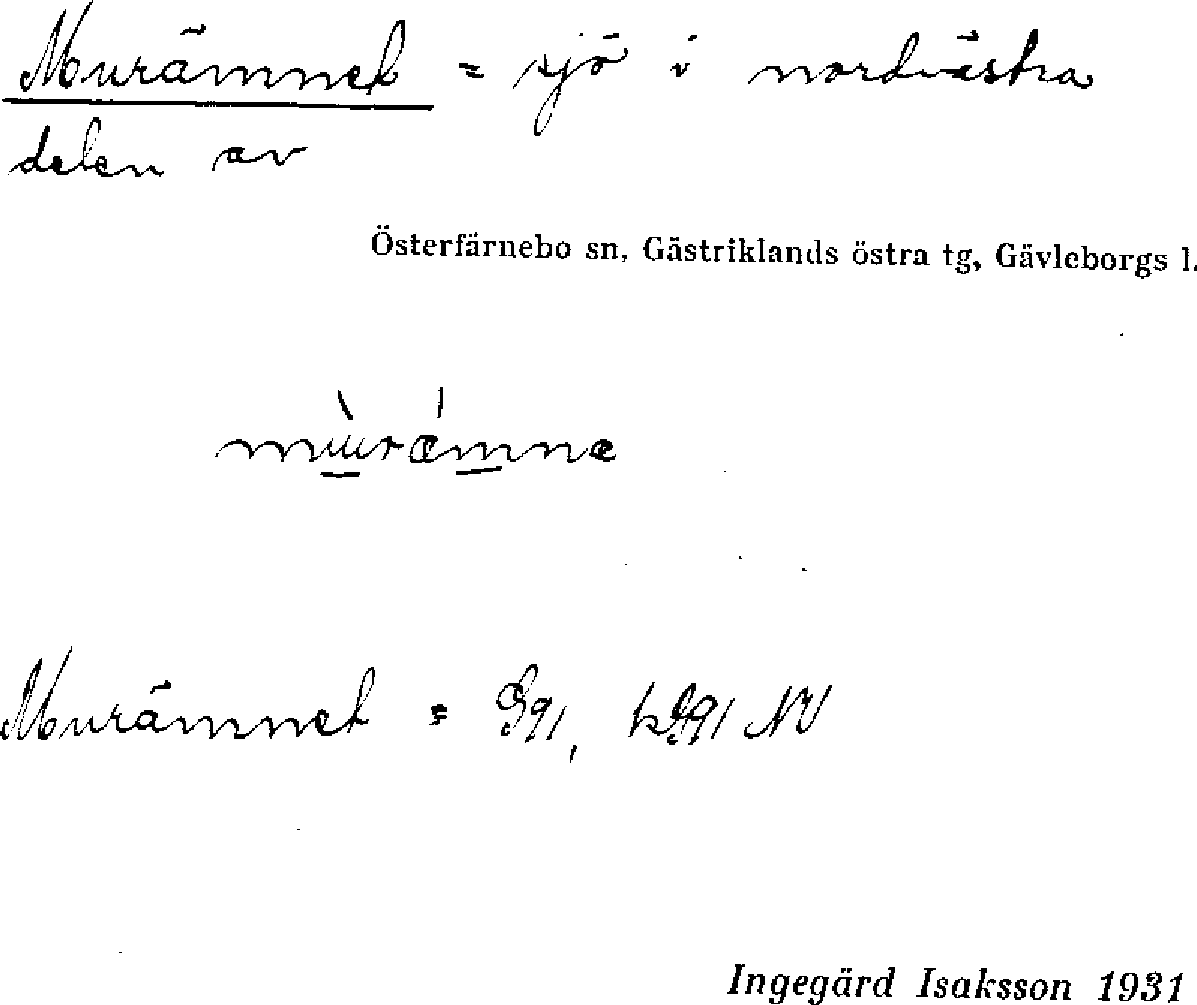 Murämnet = sjö i nordvästra
delen av
Österfärnebo sn, Gästriklands östra tg, Gävleborgs l.
Murämnet = G91, NV
Ingegärd Isaksson 1931